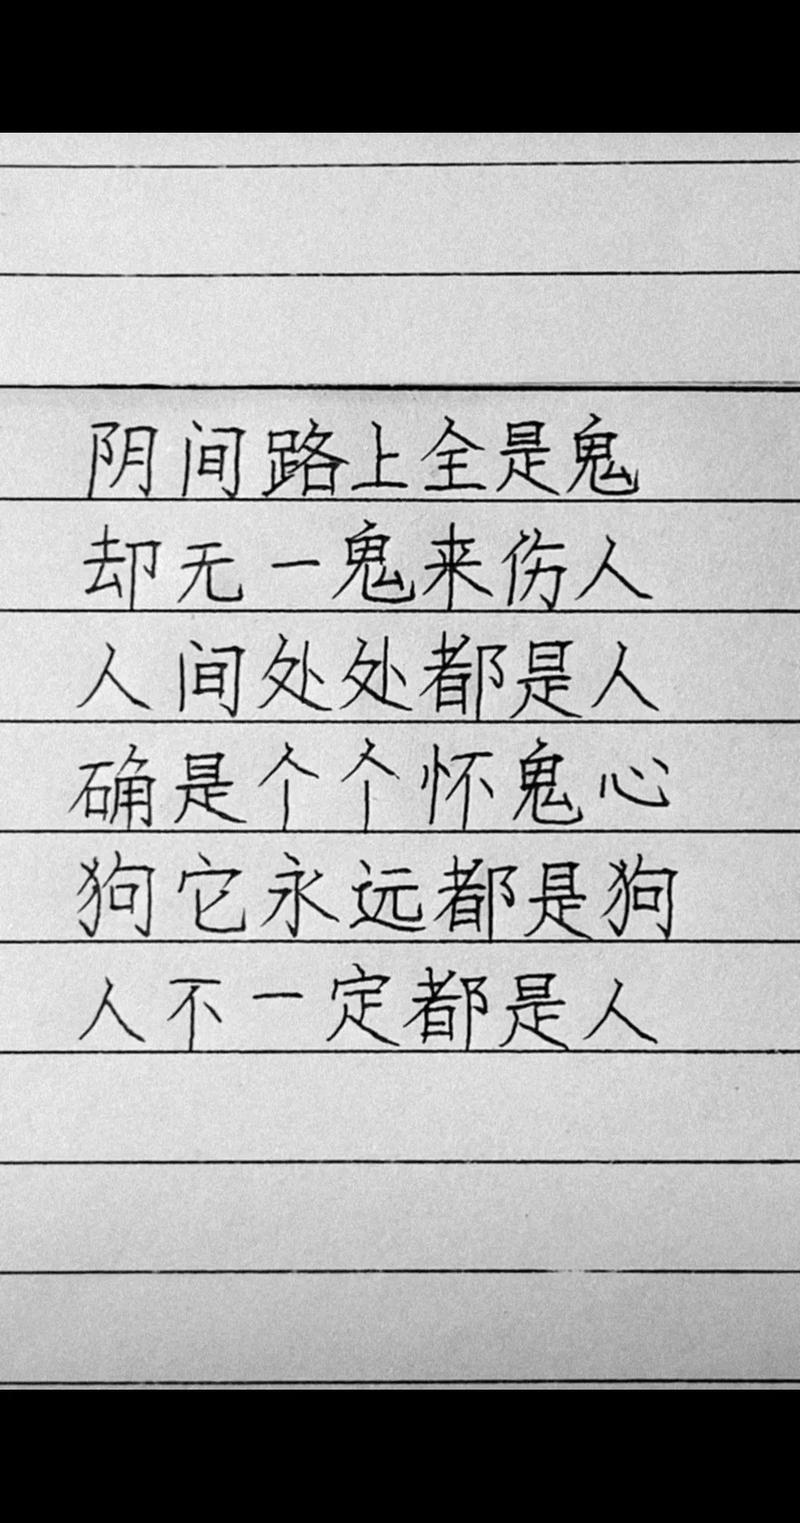 阴间路上全是鬼
却无一鬼来伤人
人间处处都是人
确是个个怀鬼心
狗它永远都是狗
人不一定都是人